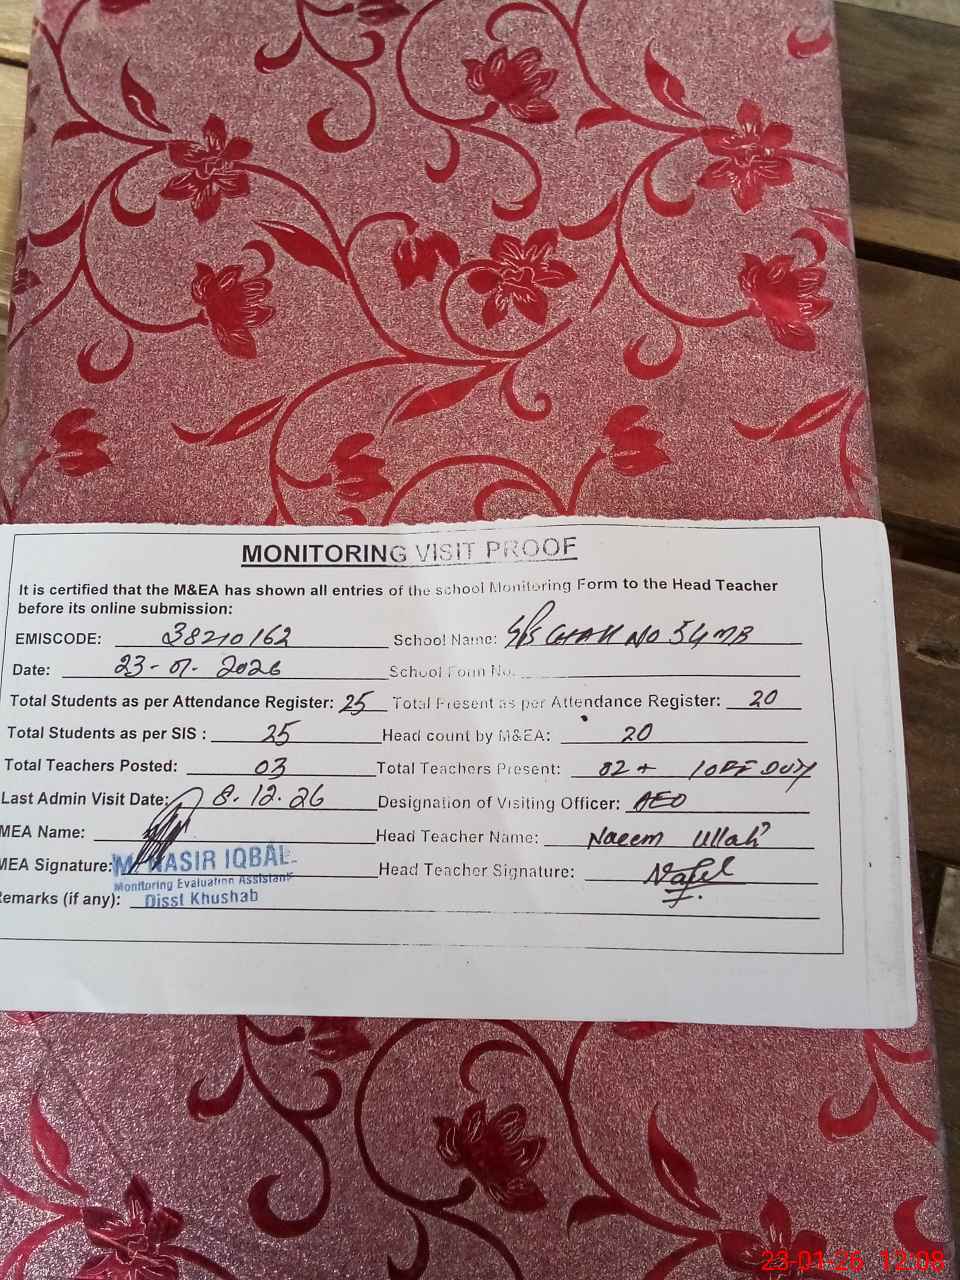 MONITORING VISIT PROOF
It is certified that the M&EA has shown all entries of the school Monitoring Form to the Head Teacher
before its online submission:
EMISCODE: 38210162 School Name: GPS CHAK NO 54 MB
Date: 23-01-2026 School Form No.
Total Students as per Attendance Register: 25 Total Present as per Attendance Register: 20
Total Students as per SIS : 25 Head count by M&EA: 20
Total Teachers Posted: 03 Total Teachers Present: 02 + 1 OFF DUTY
Last Admin Visit Date: 8.12.26 Designation of Visiting Officer: AEO
MEA Name: Head Teacher Name: Naeem Ullah
MEA Signature: M. NASIR IQBAL Head Teacher Signature:
Monitoring Evaluation Assistant
Remarks (if any): Disst Khushab
23-01-26 12:08